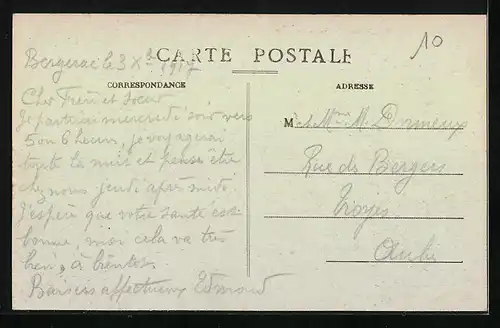 CARTE POSTALE
10
CORRESPONDANCE
ADRESSE
Bergerac le 3 Xbre 1917
Cher Frère et Soeur
Je partirai mercredi soir vers
5 ou 6 heures, je voyagerai
toute la nuit et pense être
chez nous jeudi après midi.
J'espère que votre santé est
bonne, moi cela va très
bien, à bientôt.
Baisers affectueux Edmond
M et Mme M.
Rue des Bergers
Troyes
Aube